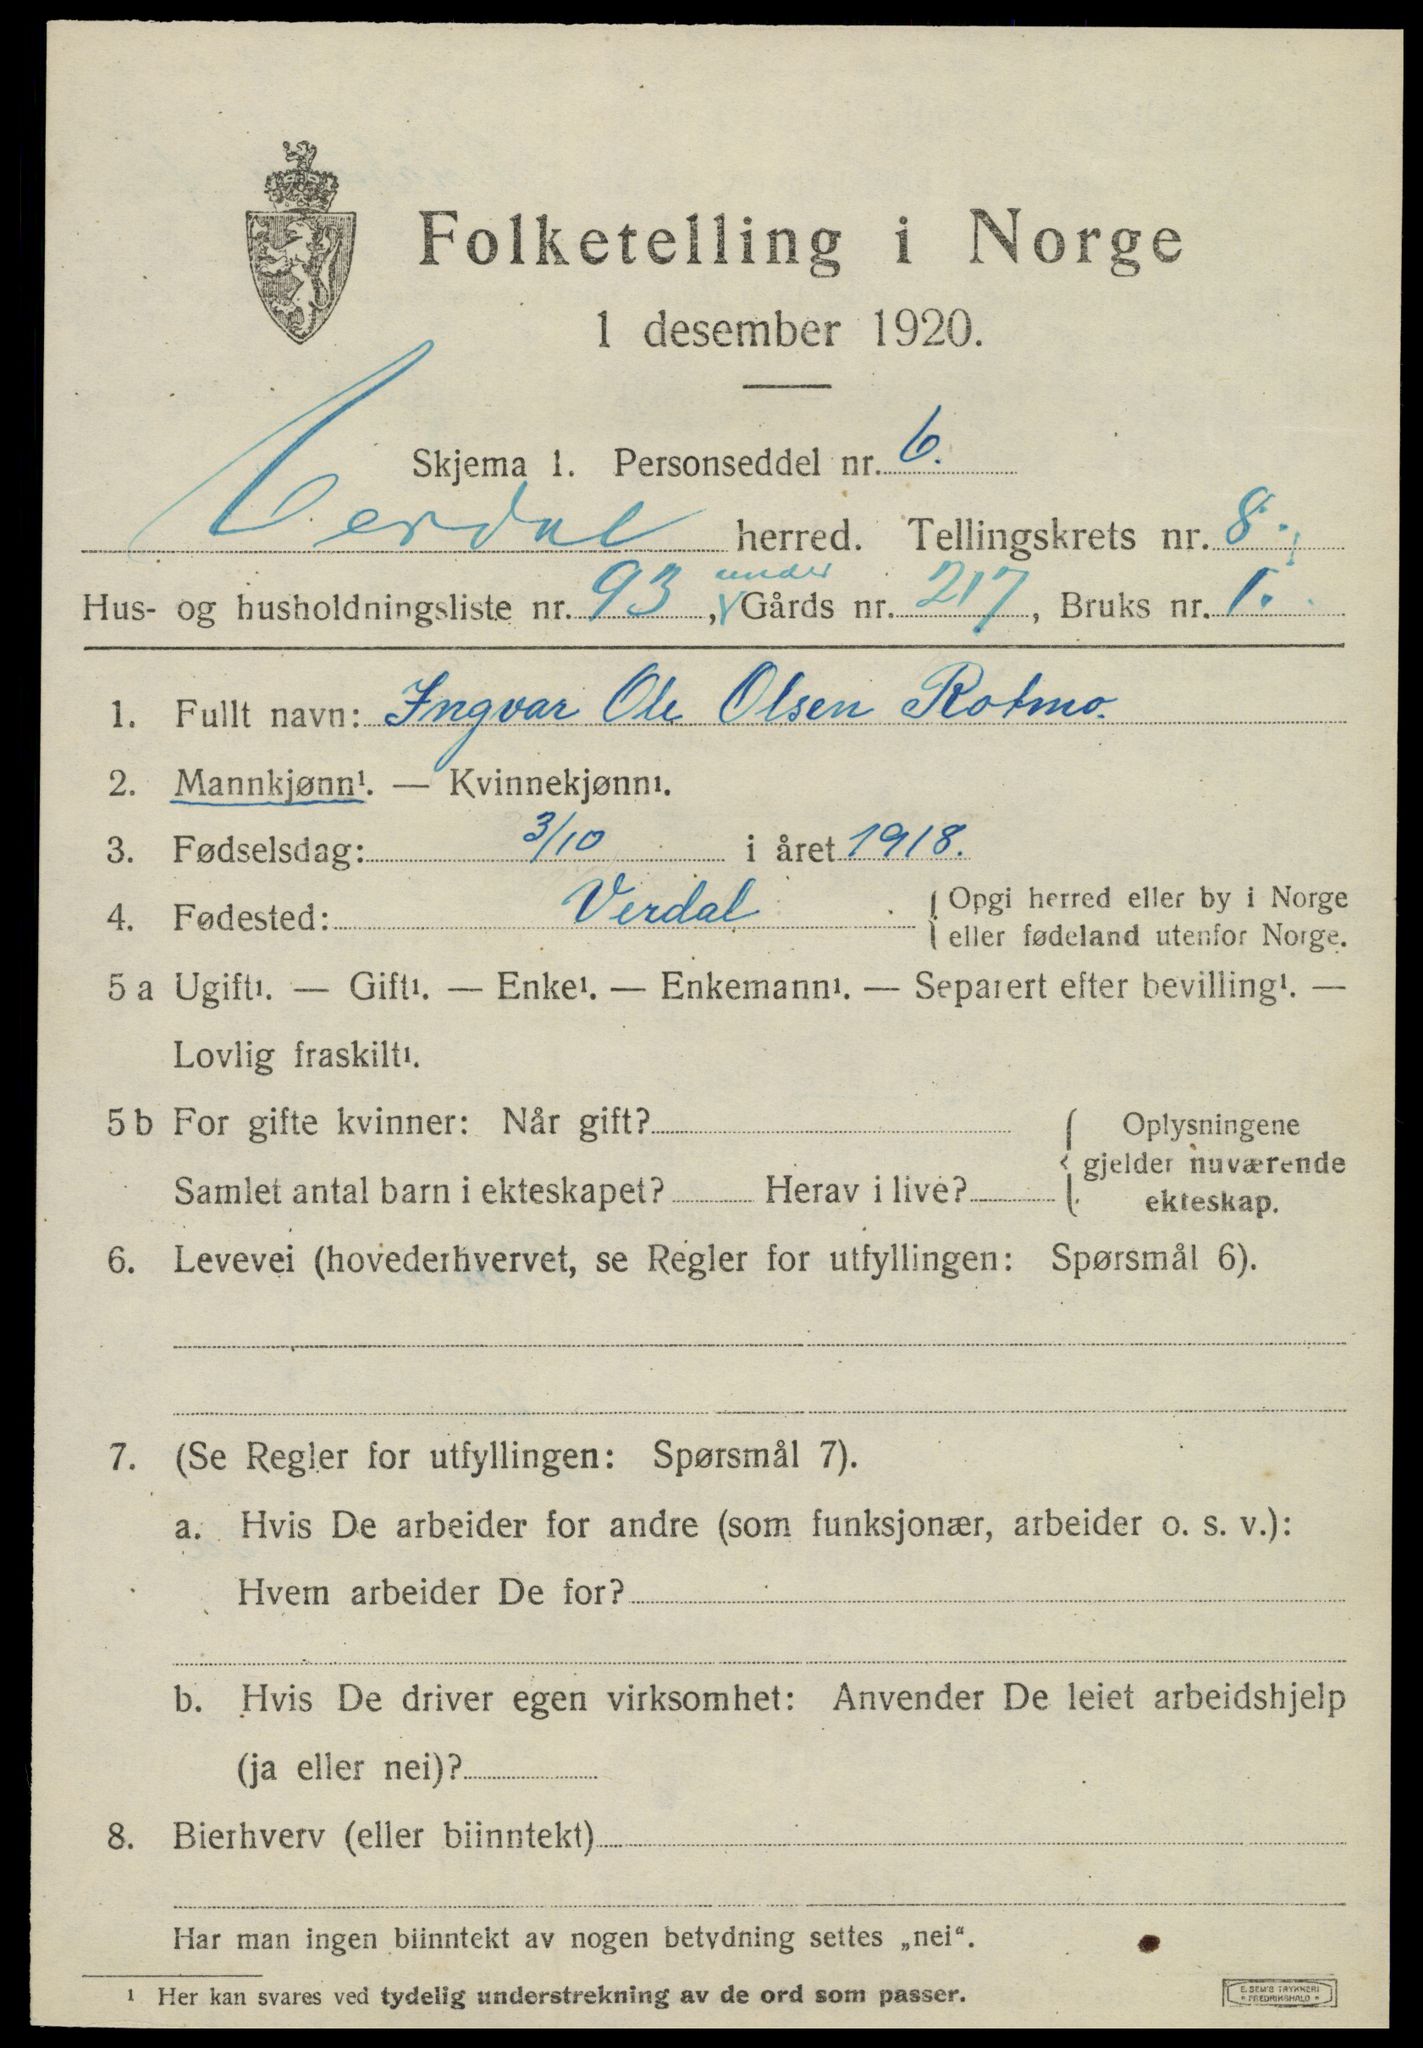 Folketelling i Norge
1 desember 1920.
Skjema 1. Personseddel nr. 6.
Verdal herred. Tellingskrets nr. 8.
under
Hus- og husholdningsliste nr. 93, Gårds nr. 217, Bruks nr. 1.
1. Fullt navn: Ingvar Ole Olsen Rotmo.
2. Mannkjønn¹. — Kvinnekjønn¹.
3. Fødselsdag: 3/10 i året 1918.
4. Fødested: Verdal { Opgi herred eller by i Norge
eller fødeland utenfor Norge.
5 a Ugift¹. — Gift¹. — Enke¹. — Enkemann¹. — Separert efter bevilling¹. —
Lovlig fraskilt¹.
5 b For gifte kvinner: Når gift? { Oplysningene
gjelder nuværende
Samlet antal barn i ekteskapet? Herav i live? ekteskap.
6. Levevei (hovederhvervet, se Regler for utfyllingen: Spørsmål 6).
7. (Se Regler for utfyllingen: Spørsmål 7).
a. Hvis De arbeider for andre (som funksjonær, arbeider o. s. v.):
Hvem arbeider De for?
b. Hvis De driver egen virksomhet: Anvender De leiet arbeidshjelp
(ja eller nei)?
8. Bierhverv (eller biinntekt)
Har man ingen biinntekt av nogen betydning settes „nei“.
¹ Her kan svares ved tydelig understrekning av de ord som passer.
E. SEM'S TRYKKERI
* FREDRIKSHALD *